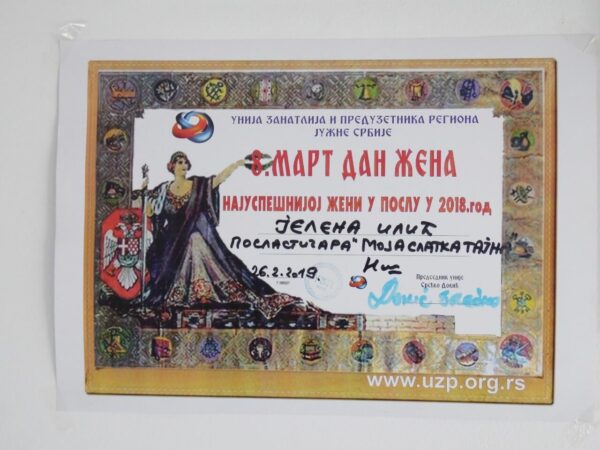 УНИЈА ЗАНАТЛИЈА И ПРЕДУЗЕТНИКА РЕГИОНА
ЈУЖНЕ СРБИЈЕ
8.МАРТ ДАН ЖЕНА
НАЈУСПЕШНИЈОЈ ЖЕНИ У ПОСЛУ У 2018.год
ЈЕЛЕНА ИЛИЋ
ПОСЛАСТИЧАРА "МОЈА СЛАТКА ТАЈНА
Ниш
26.2.2019.
Председник уније
Срећко Докић
www.uzp.org.rs